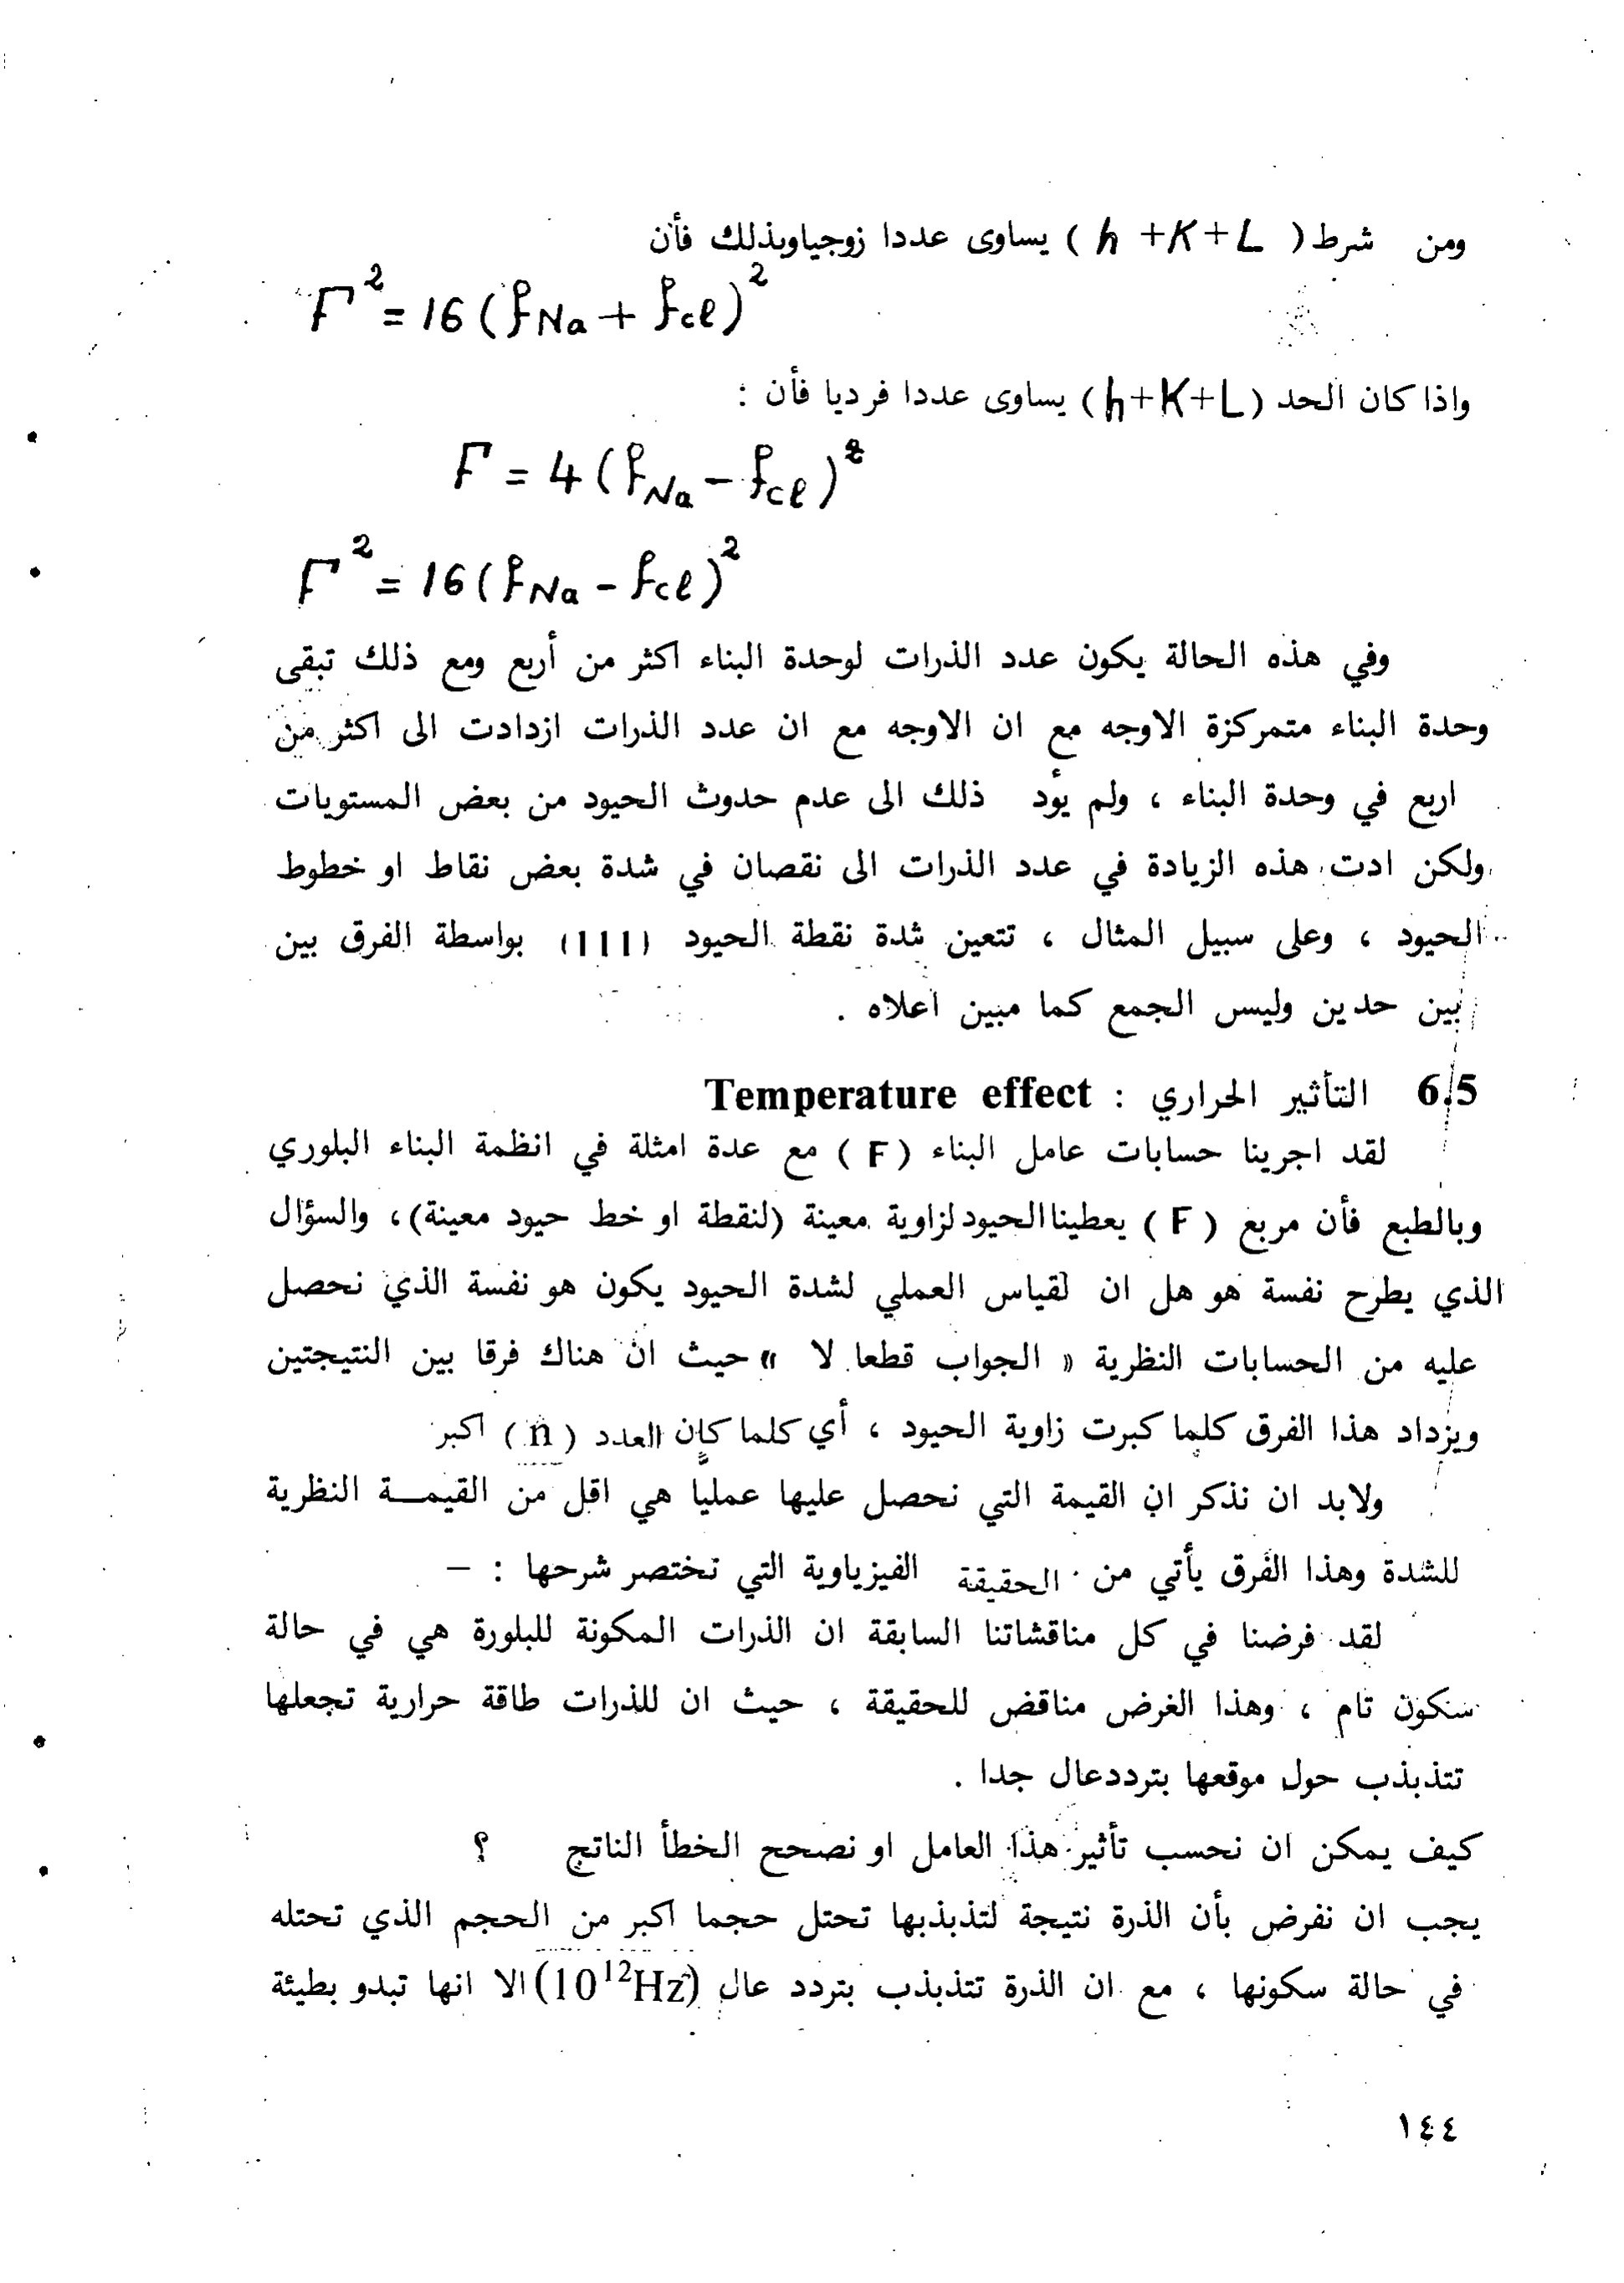 ومن شرط ( h +K+L ) يساوى عددا زوجياوبذلك فأن
F² = 16 (fNa + fcl)²
واذا كان الحد (h+K+L) يساوى عددا فرديا فأن :
F = 4 (fNa - fcl)²
F² = 16 (fNa - fcl)²
وفي هذه الحالة يكون عدد الذرات لوحدة البناء اكثر من أربع ومع ذلك تبقى
وحدة البناء متمركزة الاوجه مع ان الاوجه مع ان عدد الذرات ازدادت الى اكثر من
اربع في وحدة البناء ، ولم يؤد ذلك الى عدم حدوث الحيود من بعض المستويات
ولكن ادت هذه الزيادة في عدد الذرات الى نقصان في شدة بعض نقاط او خطوط
الحيود ، وعلى سبيل المثال ، تتعين شدة نقطة الحيود (111) بواسطة الفرق بين
بين حدين وليس الجمع كما مبين اعلاه .
6.5 التأثير الحراري : Temperature effect
لقد اجرينا حسابات عامل البناء ( F ) مع عدة امثلة في انظمة البناء البلوري
وبالطبع فأن مربع ( F ) يعطيناالحيود لزاوية معينة (لنقطة او خط حيود معينة)، والسؤال
الذي يطرح نفسة هو هل ان لقياس العملي لشدة الحيود يكون هو نفسة الذي نحصل
عليه من الحسابات النظرية « الجواب قطعا لا » حيث ان هناك فرقا بين النتيجتين
ويزداد هذا الفرق كلما كبرت زاوية الحيود ، أي كلما كان العدد ( n ) اكبر
ولابد ان نذكر ان القيمة التي نحصل عليها عمليا هي اقل من القيمـــة النظرية
للشدة وهذا الفرق يأتي من الحقيقة الفيزياوية التي تختصر شرحها : –
لقد فرضنا في كل مناقشاتنا السابقة ان الذرات المكونة للبلورة هي في حالة
سكون تام ، وهذا الغرض مناقض للحقيقة ، حيث ان للذرات طاقة حرارية تجعلها
تتذبذب حول موقعها بترددعال جدا .
كيف يمكن ان نحسب تأثير هذا العامل او نصحح الخطأ الناتج ؟
يجب ان نفرض بأن الذرة نتيجة لتذبذبها تحتل حجما اكبر من الحجم الذي تحتله
في حالة سكونها ، مع ان الذرة تتذبذب بتردد عال (10¹²Hz) الا انها تبدو بطيئة
١٤٤